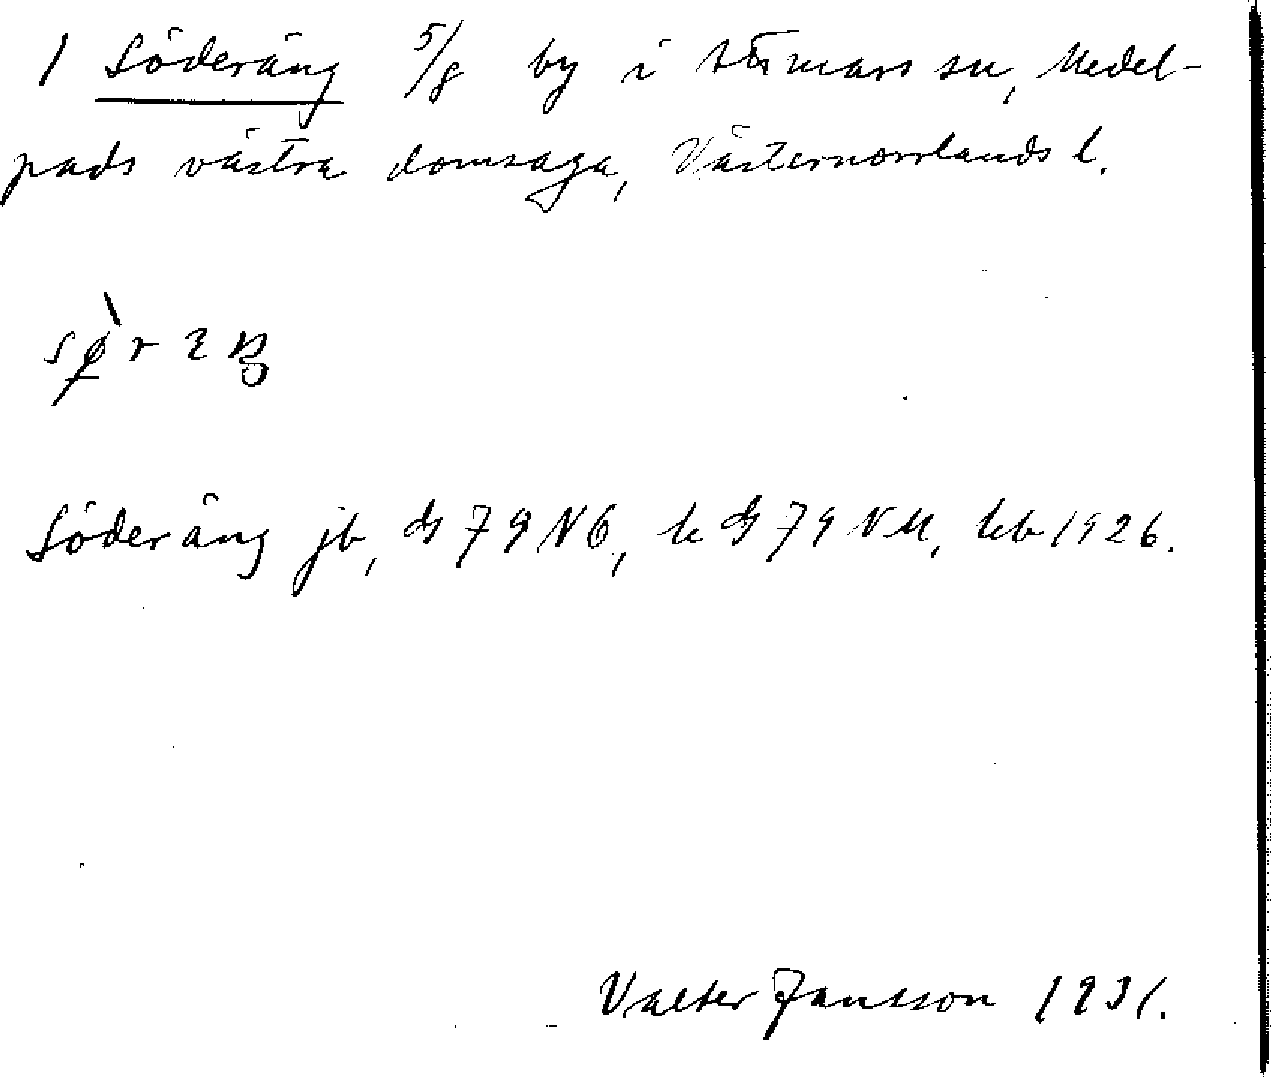 1 Söderäng 5/8 by i Stöde sn, Medel-
pads västra domsaga, Västernorrlands l.
Söderäng jb, ds 79 NÖ, k ds 79 NM, kb 1926.
Valter Jansson 1931.